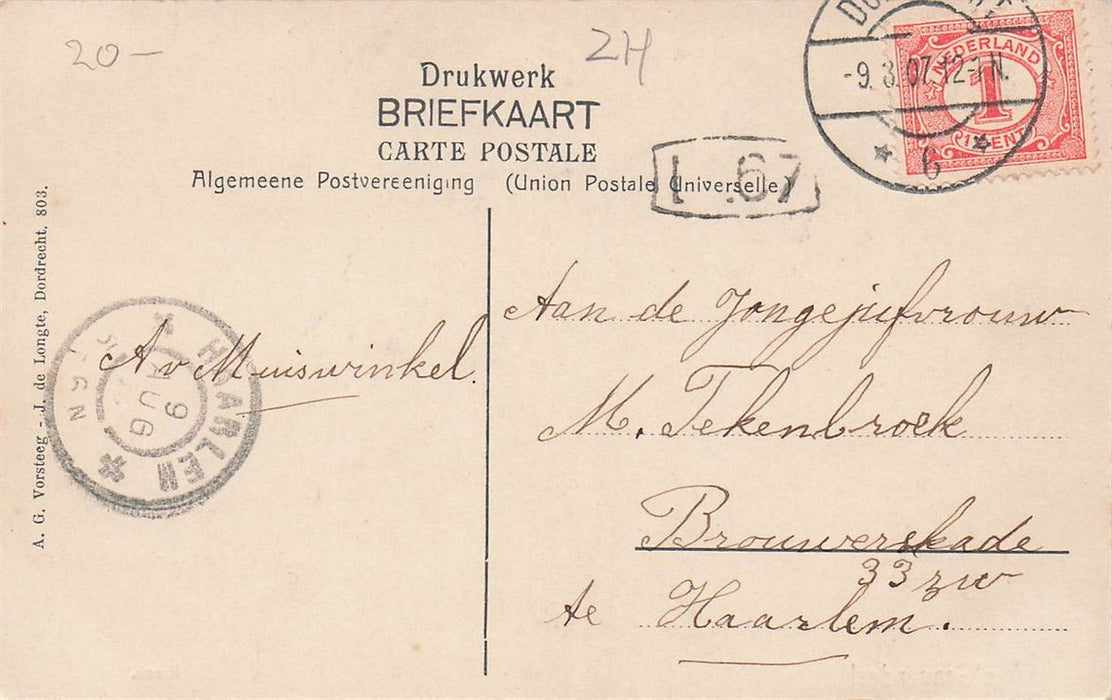 20-
ZH
Drukwerk
BRIEFKAART
CARTE POSTALE
Algemeene Postvereeniging (Union Postale Universelle)
-9. 8.07.12-1N.
NEDERLAND
1
1 CENT
A. G. Vorsteeg - J. de Longte, Dordrecht. 803.
HAARLEM
9
AUG
A v Muiswinkel.
Aan de Jongejufvrouw
M. Tekenbroek
Brouwerskade
33 zw
te Haarlem.